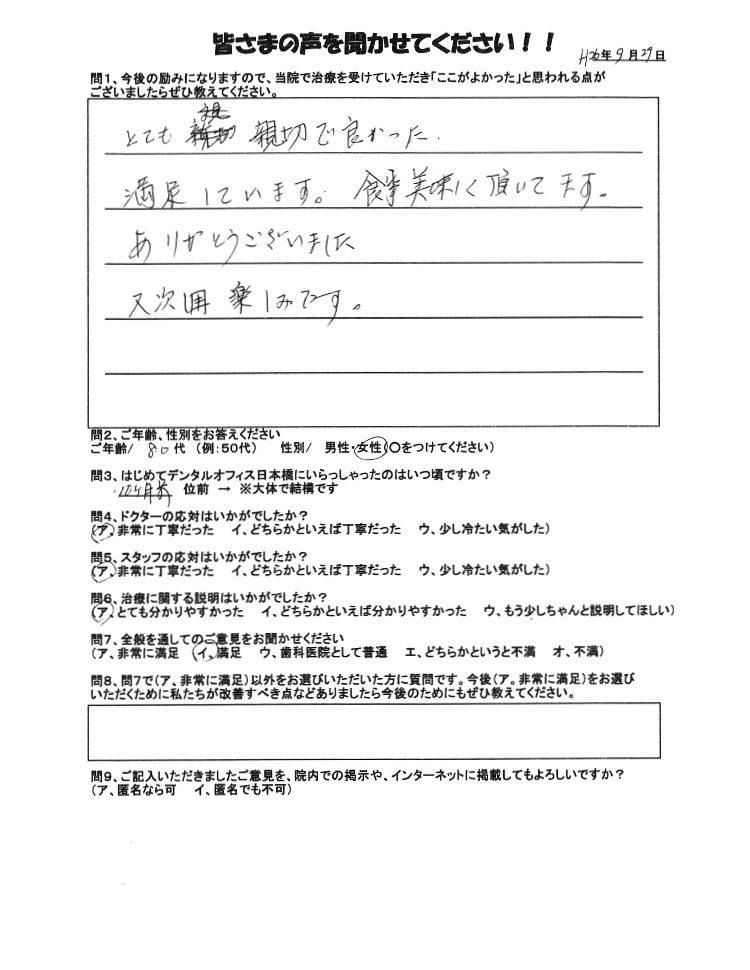 皆さまの声を聞かせてください!!
H26年9月29日
問1、今後の励みになりますので、当院で治療を受けていただき「ここがよかった」と思われる点が
ございましたらぜひ教えてください。
とても 親切で良かった.
満足しています。 食事美味しく頂いてます。
ありがとうございました
又次回 楽しみです。
問2、ご年齢、性別をお答えください
ご年齢/ 80代 (例:50代) 性別/ 男性・女性(○をつけてください)
問3、はじめてデンタルオフィス日本橋にいらっしゃったのはいつ頃ですか?
位前 → ※大体で結構です
問4、ドクターの応対はいかがでしたか?
(ア、非常に丁寧だった イ、どちらかといえば丁寧だった ウ、少し冷たい気がした)
問5、スタッフの応対はいかがでしたか?
(ア、非常に丁寧だった イ、どちらかといえば丁寧だった ウ、少し冷たい気がした)
問6、治療に関する説明はいかがでしたか?
(ア、とても分かりやすかった イ、どちらかといえば分かりやすかった ウ、もう少しちゃんと説明してほしい)
問7、全般を通してのご意見をお聞かせください
(ア、非常に満足 イ、満足 ウ、歯科医院として普通 エ、どちらかというと不満 オ、不満)
問8、問7で(ア、非常に満足)以外をお選びいただいた方に質問です。今後(ア。非常に満足)をお選び
いただくために私たちが改善すべき点などありましたら今後のためにもぜひ教えてください。
問9、ご記入いただきましたご意見を、院内での掲示や、インターネットに掲載してもよろしいですか?
(ア、匿名なら可 イ、匿名でも不可)